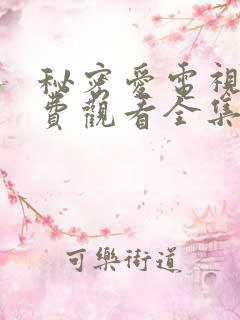 秘密愛電視
費觀看全集
可樂街道